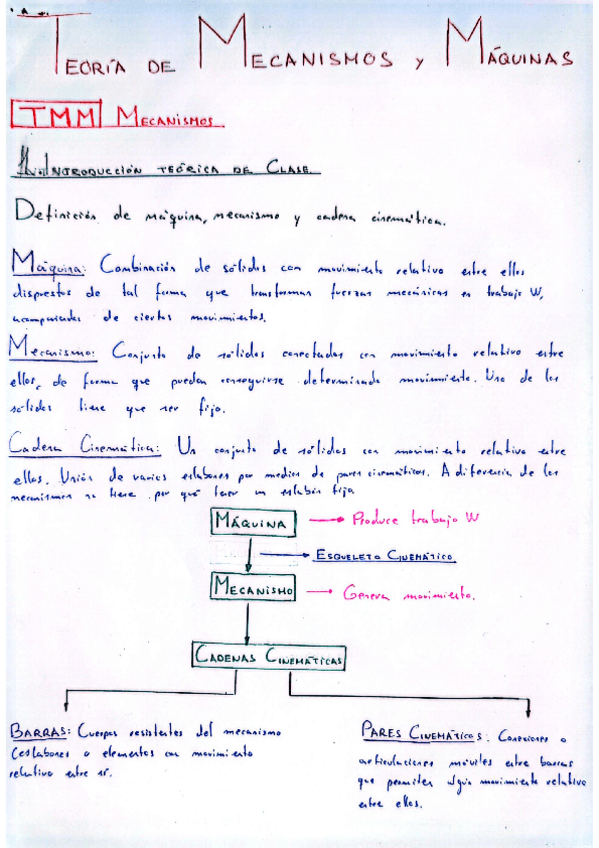 TEORÍA DE MECANISMOS Y MÁQUINAS
TMM MECANISMOS
1.- INTRODUCCIÓN TEÓRICA DE CLASE.
Definición de máquina, mecanismo y cadena cinemática.
Máquina: Combinación de sólidos con movimiento relativo entre ellos
dispuestos de tal forma que transforman fuerzas mecánicas en trabajo W,
acompañadas de ciertos movimientos.
Mecanismo: Conjunto de sólidos conectados con movimiento relativo entre
ellos, de forma que puedan conseguirse determinado movimiento. Uno de los
sólidos tiene que ser fijo.
Cadena Cinemática: Un conjunto de sólidos con movimiento relativo entre
ellos. Unión de varios eslabones por medios de pares cinemáticos. A diferencia de los
mecanismos no tiene por qué tener un eslabón fijo
MÁQUINA → Produce trabajo W
→ ESQUELETO CINEMÁTICO
MECANISMO → Genera movimiento.
CADENAS CINEMÁTICAS
BARRAS: Cuerpos resistentes del mecanismo
(eslabones o elementos con movimiento
relativo entre sí.
PARES CINEMÁTICOS: Conexiones o
articulaciones móviles entre barras
que permiten algún movimiento relativo
entre ellos.